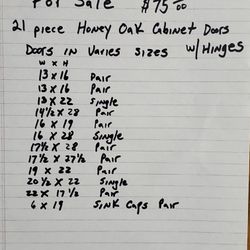 For Sale $75.00
21 piece Honey Oak Cabinet Doors
Doors in Varies sizes w/ Hinges
W x H
13 x 16 Pair
13 x 16 Pair
13 x 22 Single
14 1/2 x 28 Pair
16 x 19 Pair
16 x 28 Single
17 1/2 x 28 Pair
17 1/2 x 27 1/2 Pair
19 x 22 Pair
20 1/2 x 22 Single
22 x 17 1/2 Pair
6 x 19 Sink Caps Pair